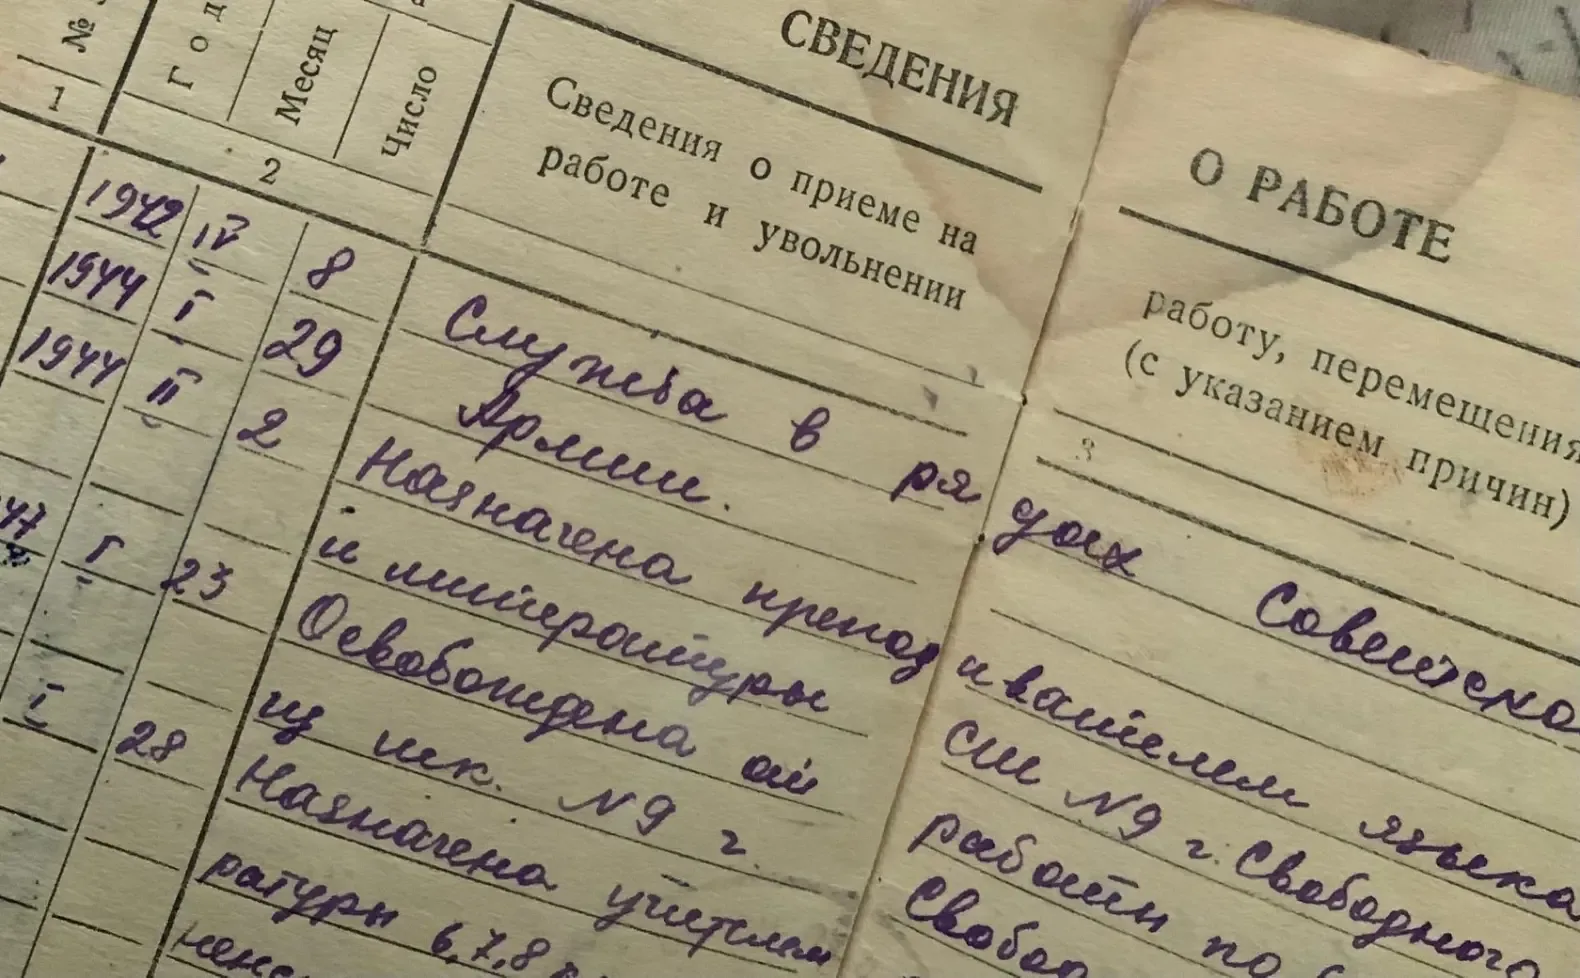 СВЕДЕНИЯ О РАБОТЕ
№
Год Месяц Число
Сведения о приеме на работу, перемещения
работе и увольнении (с указанием причин)
1 2 3
1942 IV 8 Служба в рядах Советско
1944 I 29 Армии.
1944 II 2 Назначена преподивателем языка
и литературы СШ N9 г. Свободного
47 I 23 Освобождена от работы по
из шк. N9 г. Свобод
I 28 Назначена учителем
ратуры 6,7,8